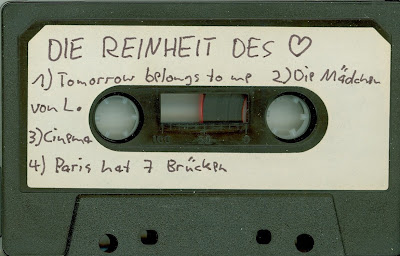 DIE REINHEIT DES ♡
1) Tomorrow belongs to me 2) Die Mädchen
von L.
3) Cinema
4) Paris hat 7 Brücken